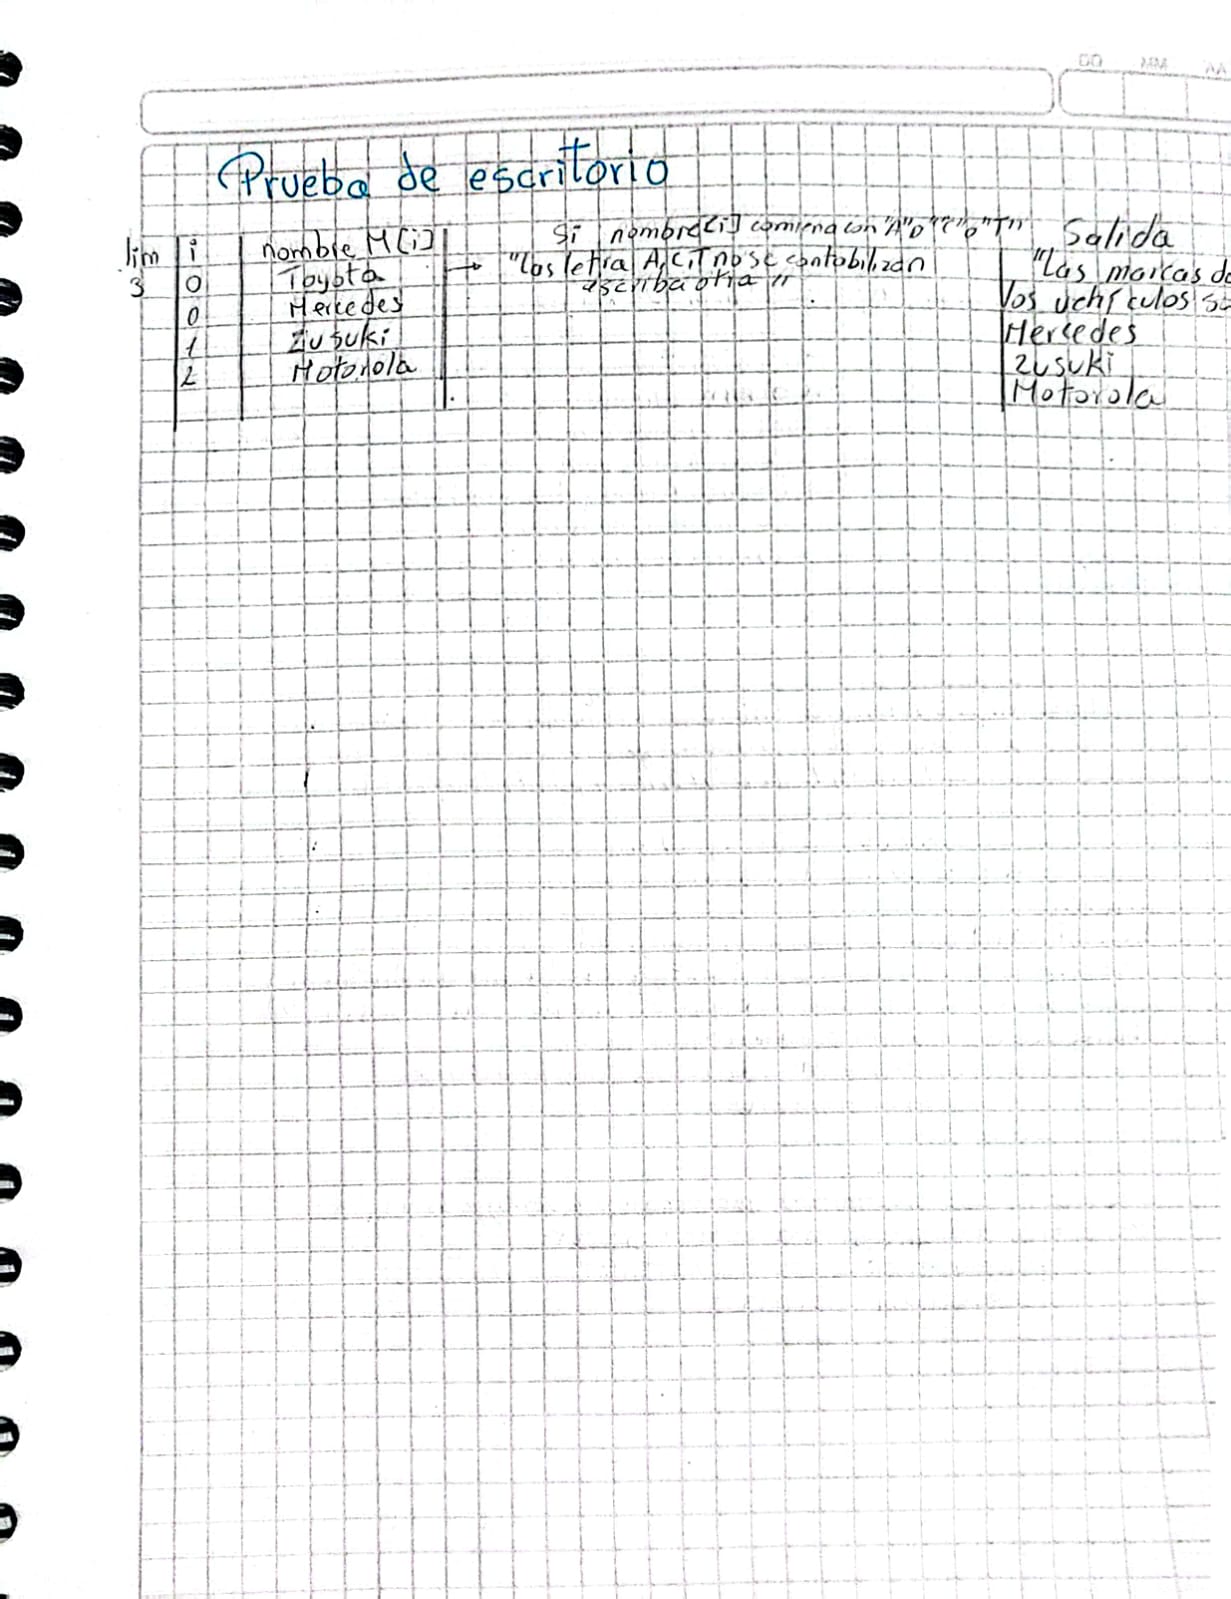 DD MM AA
Prueba de escritorio
lim i nombre M[i] Si nombre[i] comienza con "A" o "C" o "T" Salida
3 0 Toyota → "Las letra A, C, T no se contabilizan "Las marcas de
escriba otra" los vehículos so
0 Mercedes Mercedes
1 Zusuki Zusuki
2 Motorola Motorola